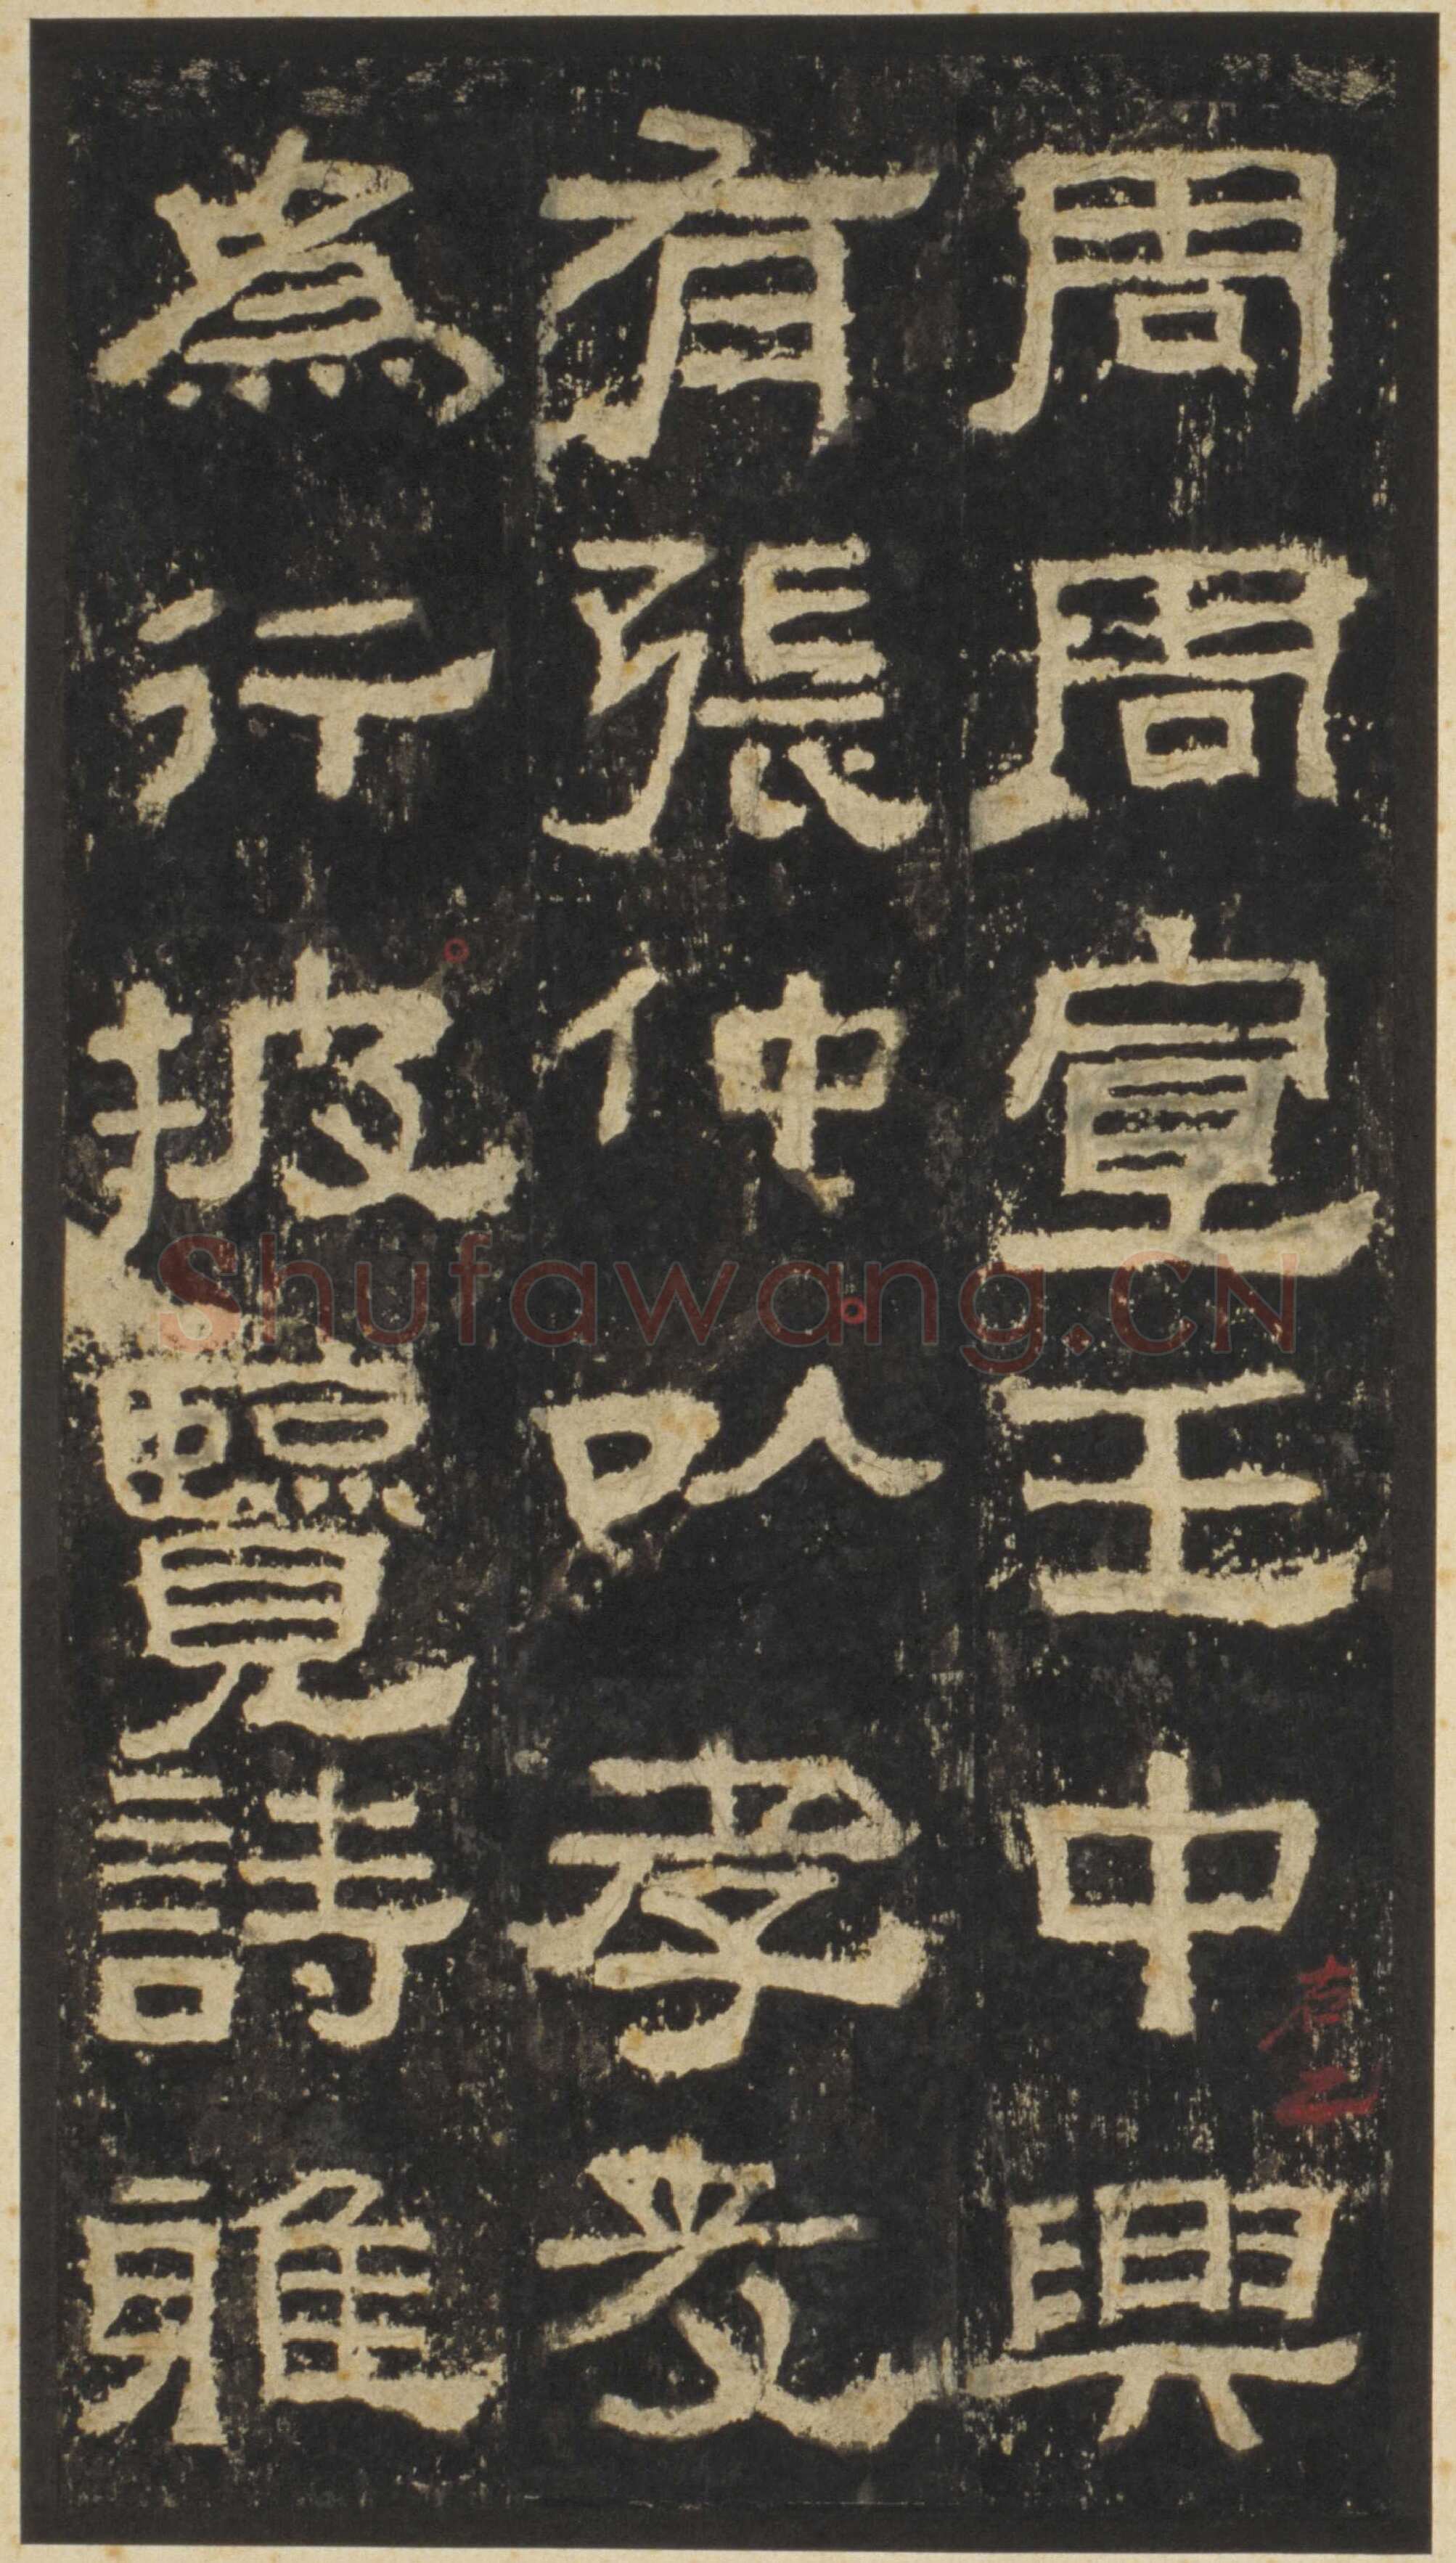 周周宣王中興
有張仲以孝友
為行披覽詩雅
Shufawang.CN